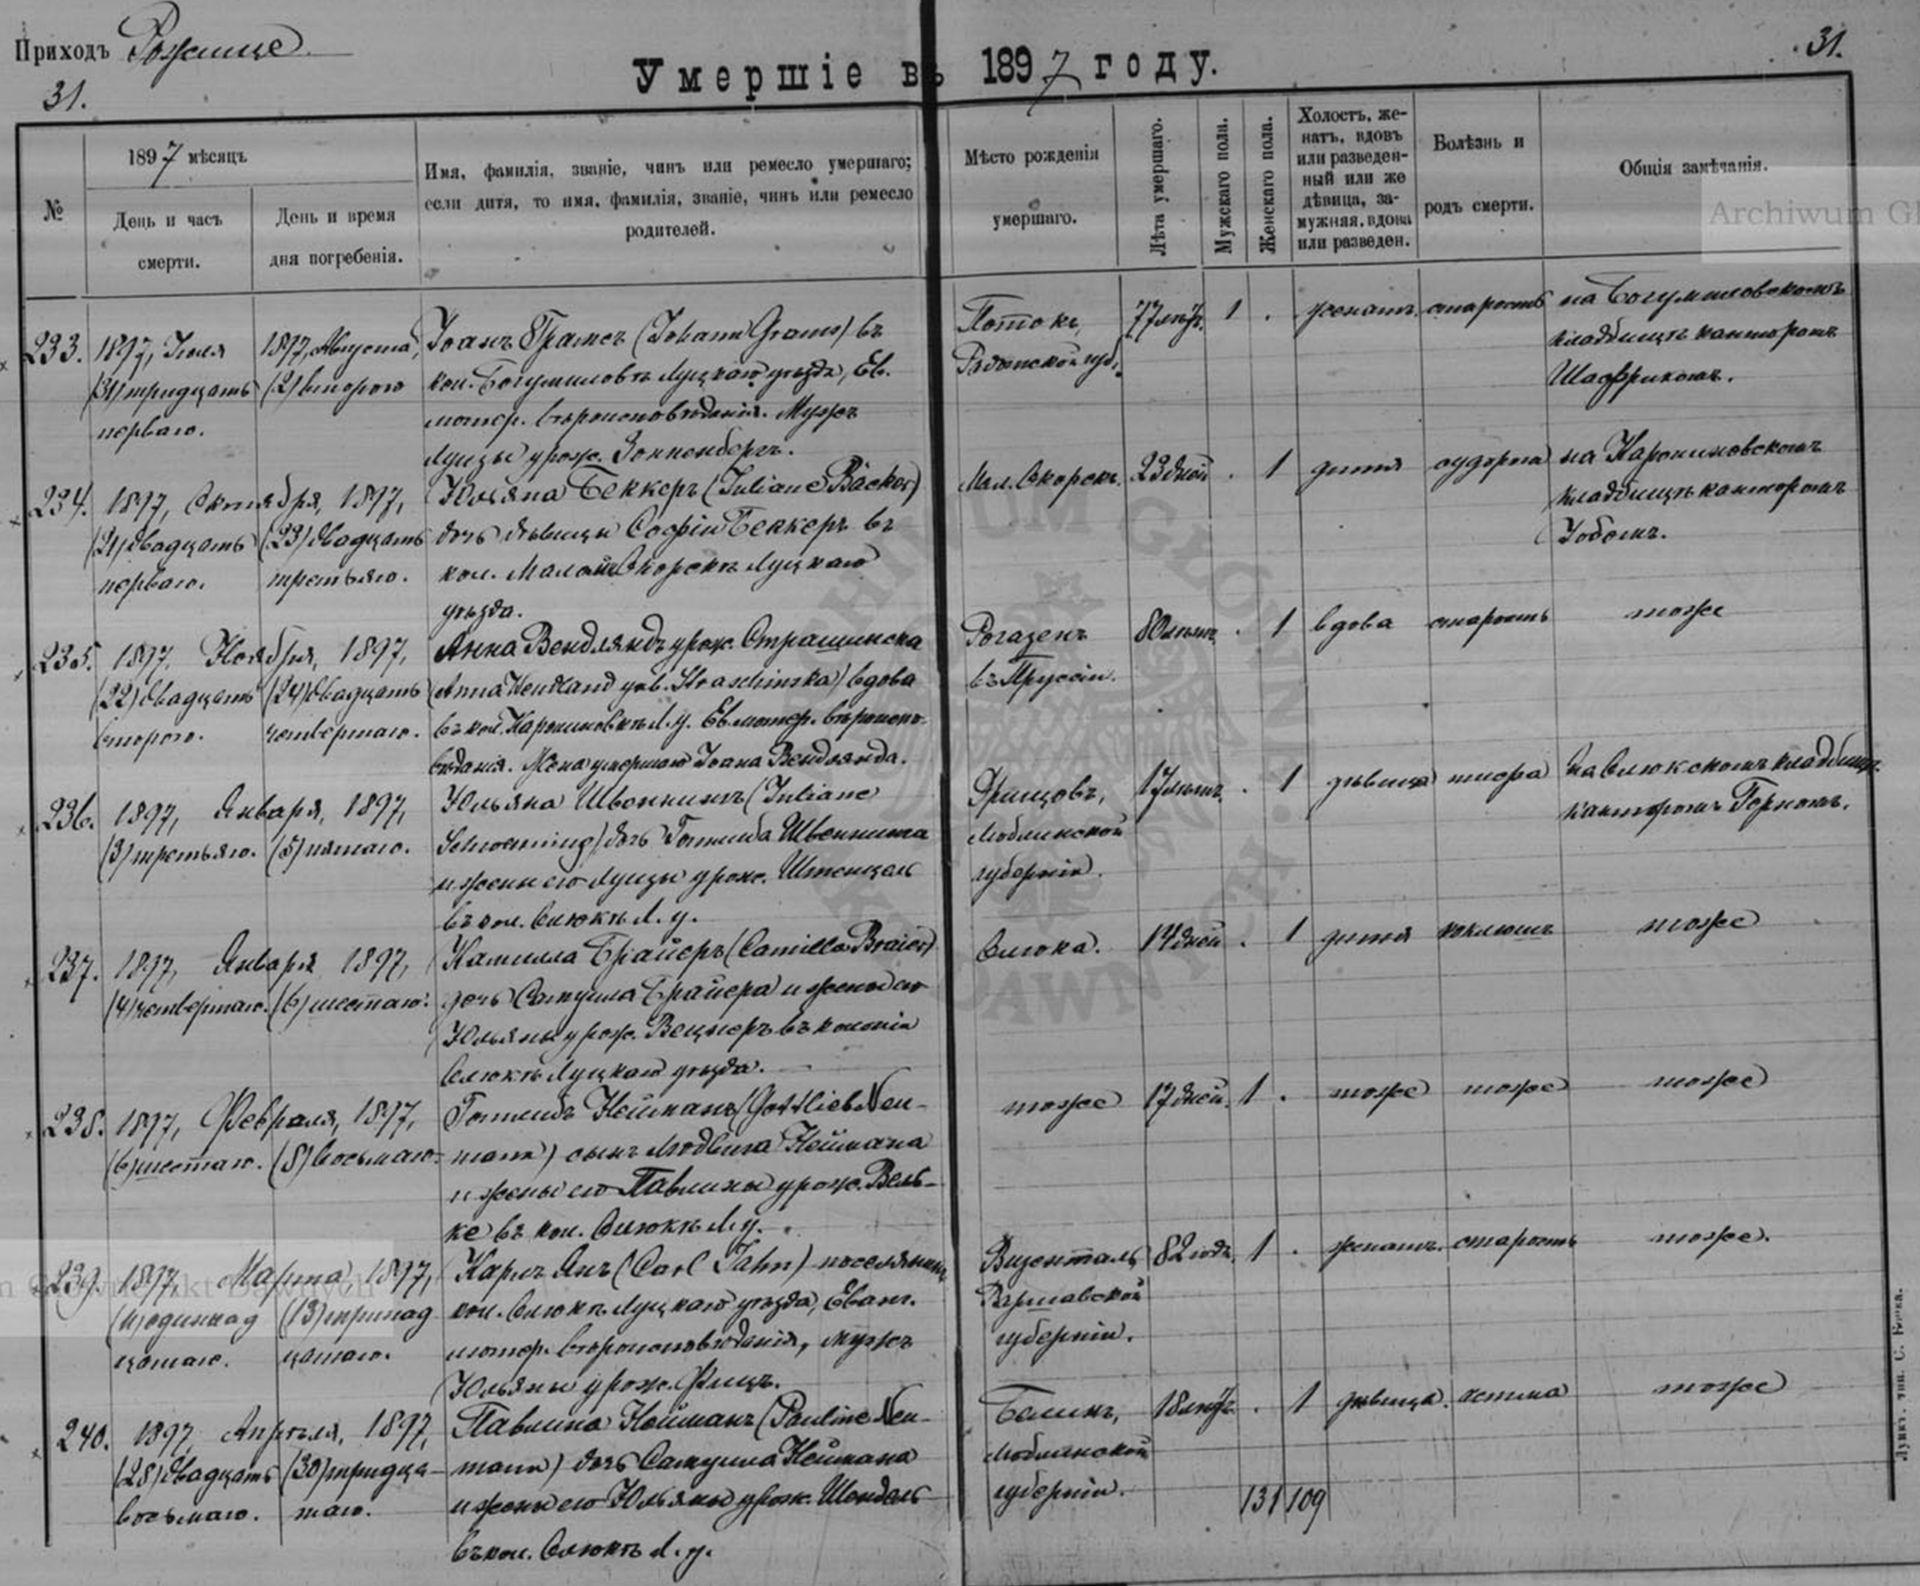 Приходъ Рожище
31.
Умершіе въ 1897 году.
31.
№
1897 мѣсяцъ
День и часъ
смерти.
День и время
дня погребенія.
Имя, фамилія, званіе, чинъ или ремесло умершаго;
если дитя, то имя, фамилія, званіе, чинъ или ремесло
родителей.
Мѣсто рожденія
умершаго.
Лѣта умершаго.
Мужскаго пола.
Женскаго пола.
Холостъ, же-
натъ, вдовъ
или разведен-
ный или же
дѣвица, за-
мужняя, вдова
или разведен.
Болѣзнь и
родъ смерти.
Общія замѣчанія.
Archiwum Gł
233. 1897, Іюля 1897, Августа, Іоанъ Грамсъ (Johann Grams) въ Потокъ, 77 лѣтъ. 1 . женатъ. старость на Богумиловскомъ
(31) тридцать (2) второго кол. Богумиловкѣ Луцкаго уѣзда, Ев. Радомской губ. кладбищѣ канторомъ
перваго. лютер. вѣроисповѣданія. Мужъ Шаффрикомъ.
Луизы урож. Зонненбергъ.
234. 1897, Октября, 1897, Юльяна Беккеръ (Juliane Bäcker) Мал. Скорскъ. 23 дней . 1 дитя судорога на Каролиновскомъ
(21) двадцать (23) двадцать дочь дѣвицы Софіи Беккеръ въ кладбищѣ канторомъ
перваго. третьяго. кол. Малой Скорскъ Луцкаго
уѣзда.
235. 1897, Ноября, 1897, Анна Вендляндъ урож. Страшинска Рогазенъ 80 лѣтъ. . 1 вдова старость тоже
(22) двадцать (24) двадцать (Anna Wendland geb. Straschinska) вдова въ Пруссіи.
второго. четвертаго. въ кол. Каролиновкѣ Л. у. Ев. лютер. вѣроиспо-
вѣданія. Жена умершаго Іоана Вендлянда.
236. 1897, Января, 1897, Юльяна Швоннингъ (Juliane 17 лѣтъ. . 1 дѣвица на Слюкскомъ кладбищѣ
(3) третьяго. (5) пятаго. дочь Готлиба Люблинской канторомъ
и жены его Луизы урож. Штенцель губерніи.
въ кол. Слюкѣ Л. у.
237. 1897, Января 1897, Камилла Брайеръ (Camilla Braier) Слюка. 14 дней . 1 дитя коклюшъ тоже
(4) четвертаго. (6) шестаго. дочь Самуила Брайера и жены его
Юльяны урож. въ колоніи
Слюкѣ Луцкаго уѣзда.
238. 1897, Февраля, 1897, Готлибъ Нейманъ (Gottlieb Neu- тоже 17 дней. 1 . тоже тоже тоже
(6) шестаго. (8) восьмаго. mann) сынъ Людвига Неймана
и жены его Павлины урож. Вель-
ке въ кол. Слюкѣ Л. у.
239. 1897, Марта, 1897, Карлъ Янъ (Carl Jahn) поселянинъ Визенталь 82 годъ. 1 . женатъ. старость тоже.
(11) одиннад (13) тринад кол. Слюкѣ Луцкаго уѣзда, Еванг. Варшавской
цатаго. цатаго. лютер. вѣроисповѣданія, мужъ губерніи.
Юльяны урож. Фицъ.
240. 1897, Апрѣля, 1897, Павлина Нейманъ (Pauline Neu- Белинъ, 18 лѣтъ. . 1 дѣвица. астма тоже
(28) двадцать (30) тридца- mann) дочь Самуила Неймана Люблинской
восьмаго. таго. и жены его Юльяны урож. Шендель губерніи. 131 109
въ кол. Слюкѣ Л. у.